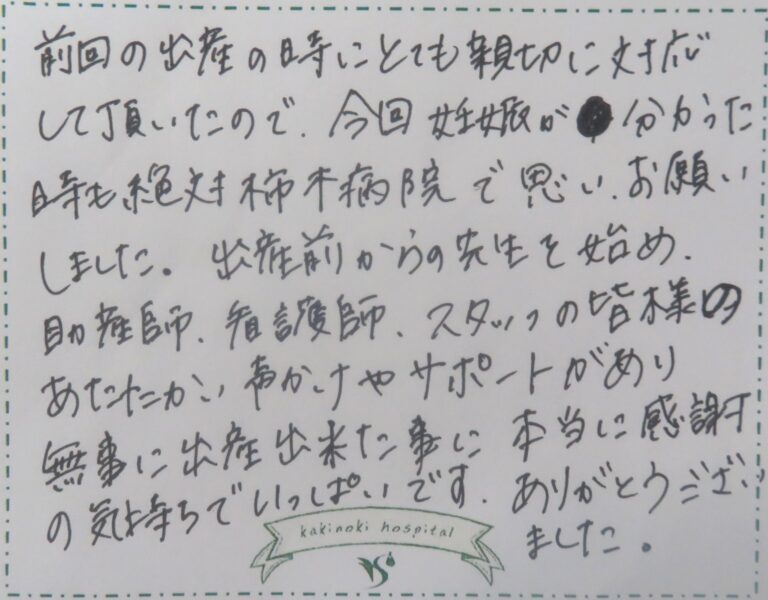 前回の出産の時にとても親切に対応
して頂いたので、今回 妊娠が 分かった
時も絶対柿木病院で思い、お願い
しました。出産前からの先生を始め、
助産師、看護師、スタッフの皆様の
あたたかい声かけやサポートがあり
無事に出産出来た事に本当に感謝
の気持ちでいっぱいです。ありがとうござい
ました。
kakinoki hospital